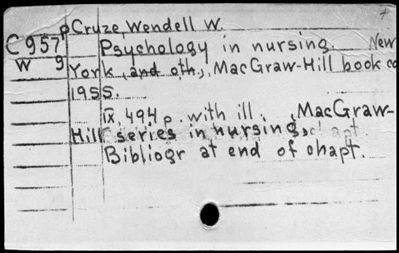 Cruze, Wendell W.
C 957 Psychology in nursing. New
w 9 York, and oth., MacGraw-Hill book co
1955.
IX, 494 p. with ill. MacGraw-
Hill series in nursing,
Bibliogr at end of chapt.